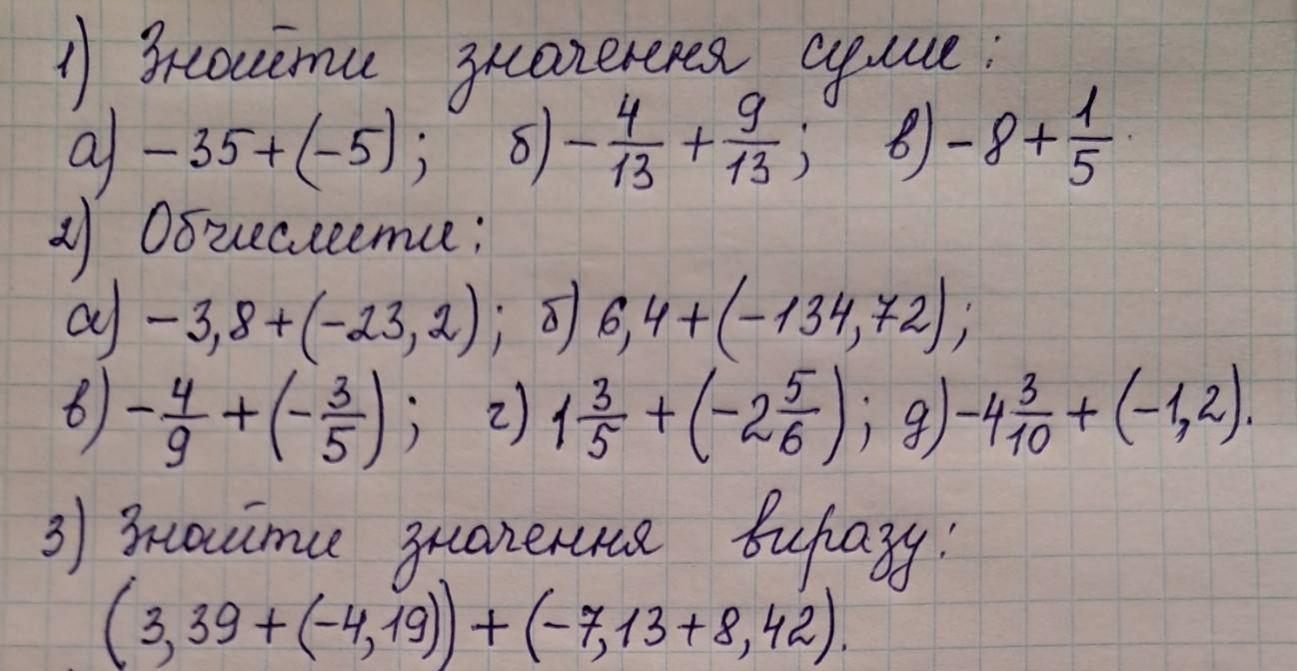 1) Знайти значення суми:
а) −35+(−5); б) −4/13 + 9/13; в) −8+1/5.
2) Обчислити:
а) −3,8+(−23,2); б) 6,4+(−134,72);
в) −4/9 + (−3/5); г) 1 3/5 + (−2 5/6); д) −4 3/10 + (−1,2).
3) Знайти значення виразу:
(3,39+(−4,19))+(−7,13+8,42).